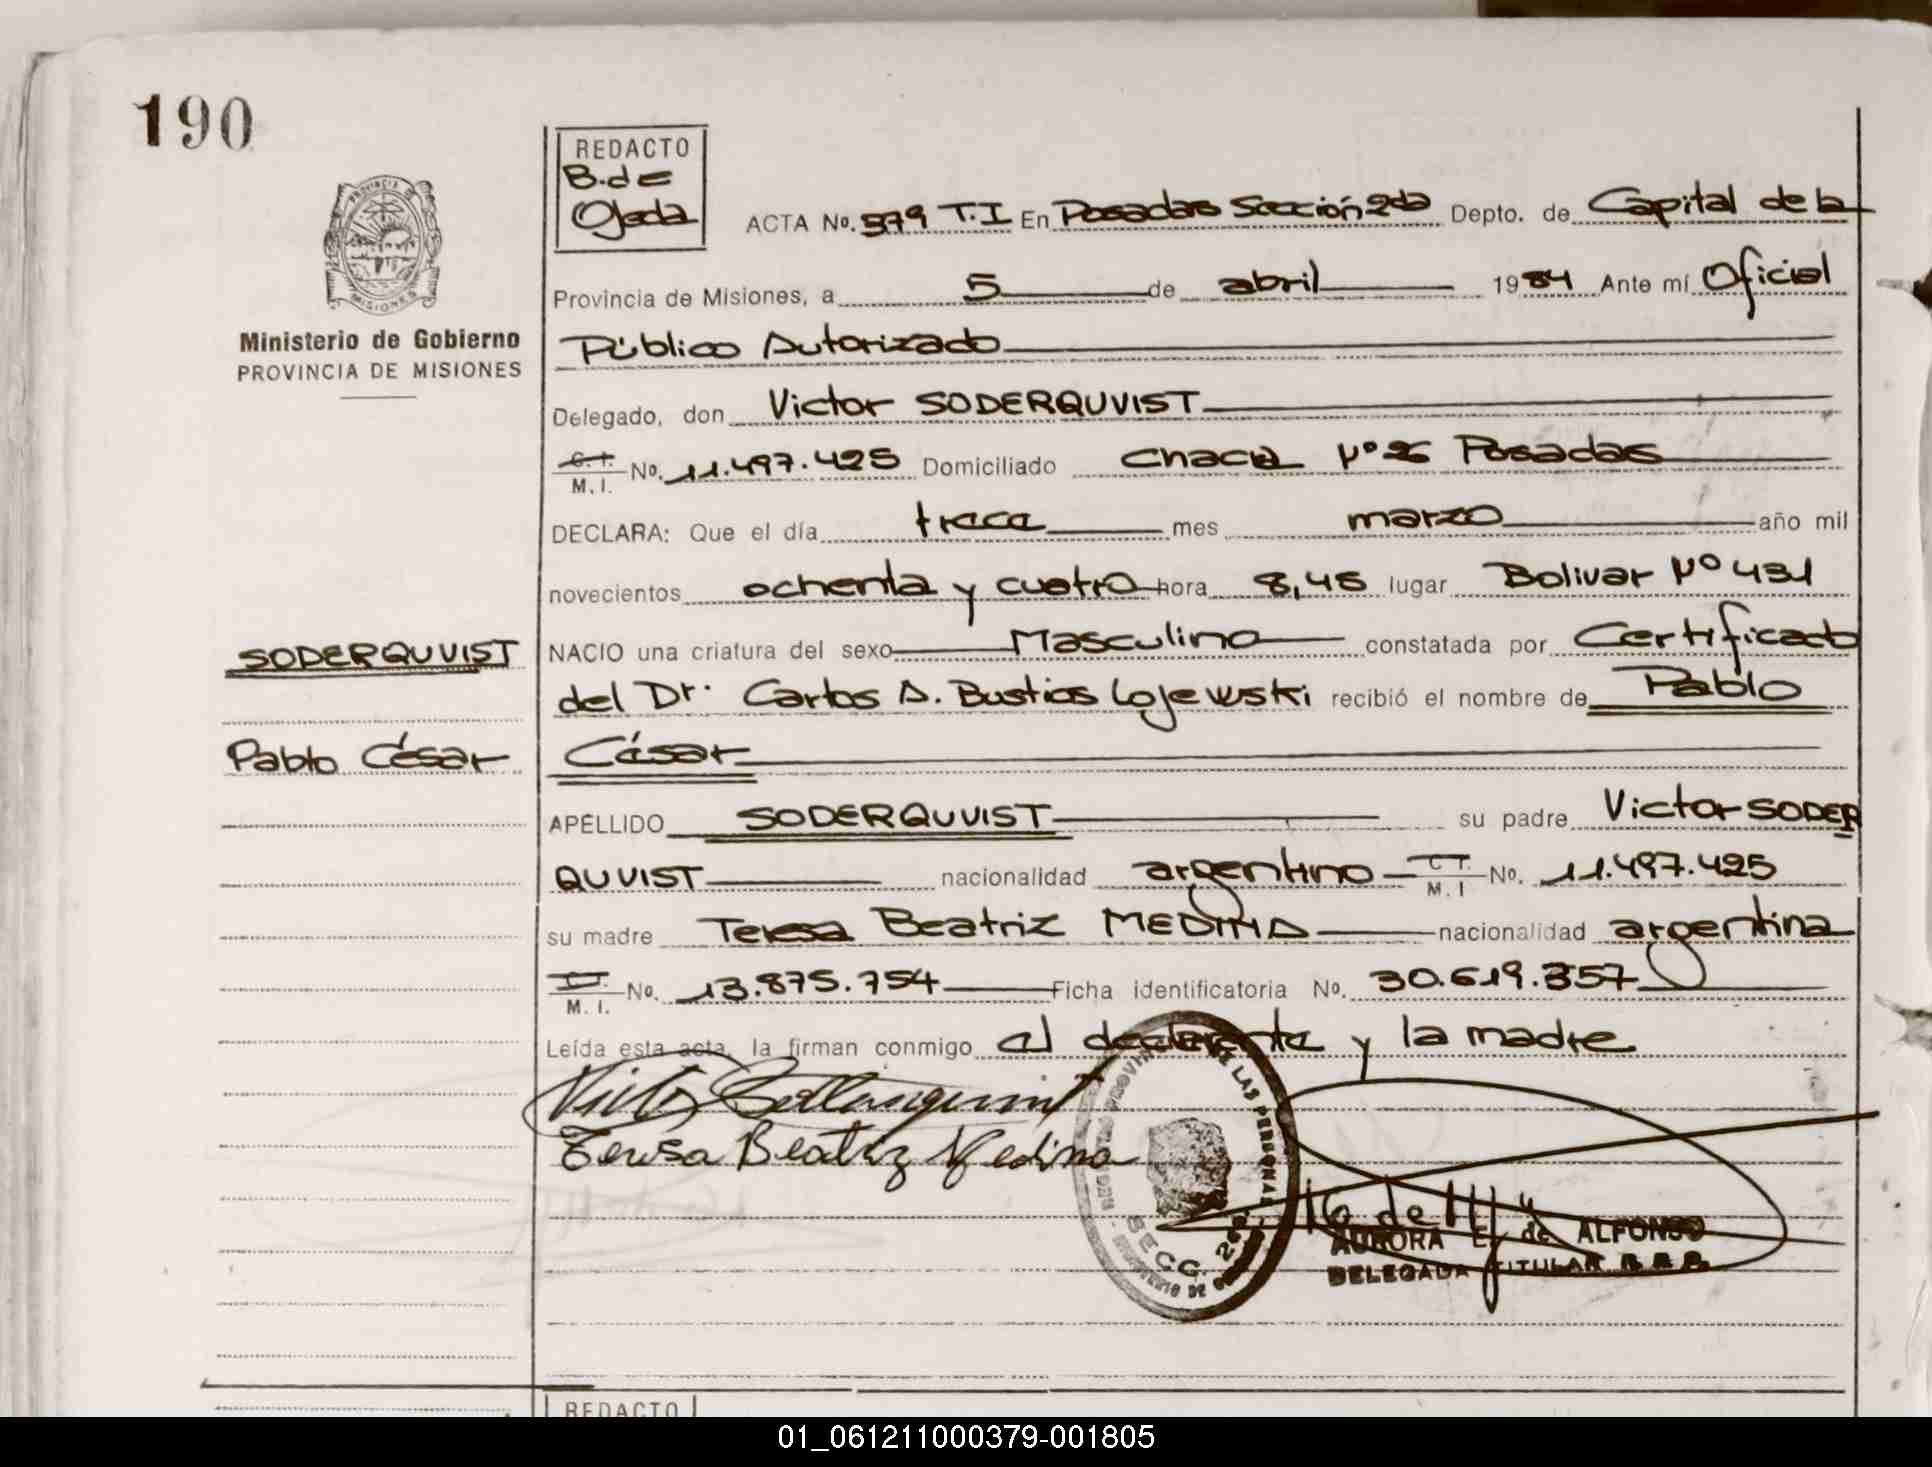 190
REDACTO
B. de
Ojeda
ACTA No. 379 T.I En Posadas Sección 2da Depto. de Capital de la
Provincia de Misiones, a 5 de abril 1984 Ante mí Oficial
Ministerio de Gobierno
PROVINCIA DE MISIONES
Público Autorizado
Delegado, don Victor SODERQUVIST
C. I.
M. I. No. 11.497.425 Domiciliado Chacra Nº 26 Posadas
DECLARA: Que el día trece mes marzo año mil
novecientos ochenta y cuatro hora 8,45 lugar Bolivar Nº 431
SODERQUVIST
NACIO una criatura del sexo Masculino constatada por Certificado
del Dr. Carlos A. Bustios Lojewski recibió el nombre de Pablo
Pablo César
César
APELLIDO SODERQUVIST su padre Victor SODER
QUVIST nacionalidad argentino C I. M. I No. 11.497.425
su madre Teresa Beatriz MEDINA nacionalidad argentina
M. I. No. 13.875.754 Ficha identificatoria No. 30.619.357
Leída esta acta, la firman conmigo el declarante y la madre
Teresa Beatriz Medina
DE LAS PERSONAS
SECC. 2da.
AURORA E. de ALFONSO
DELEGADA TITULAR
REDACTO
01_061211000379-001805